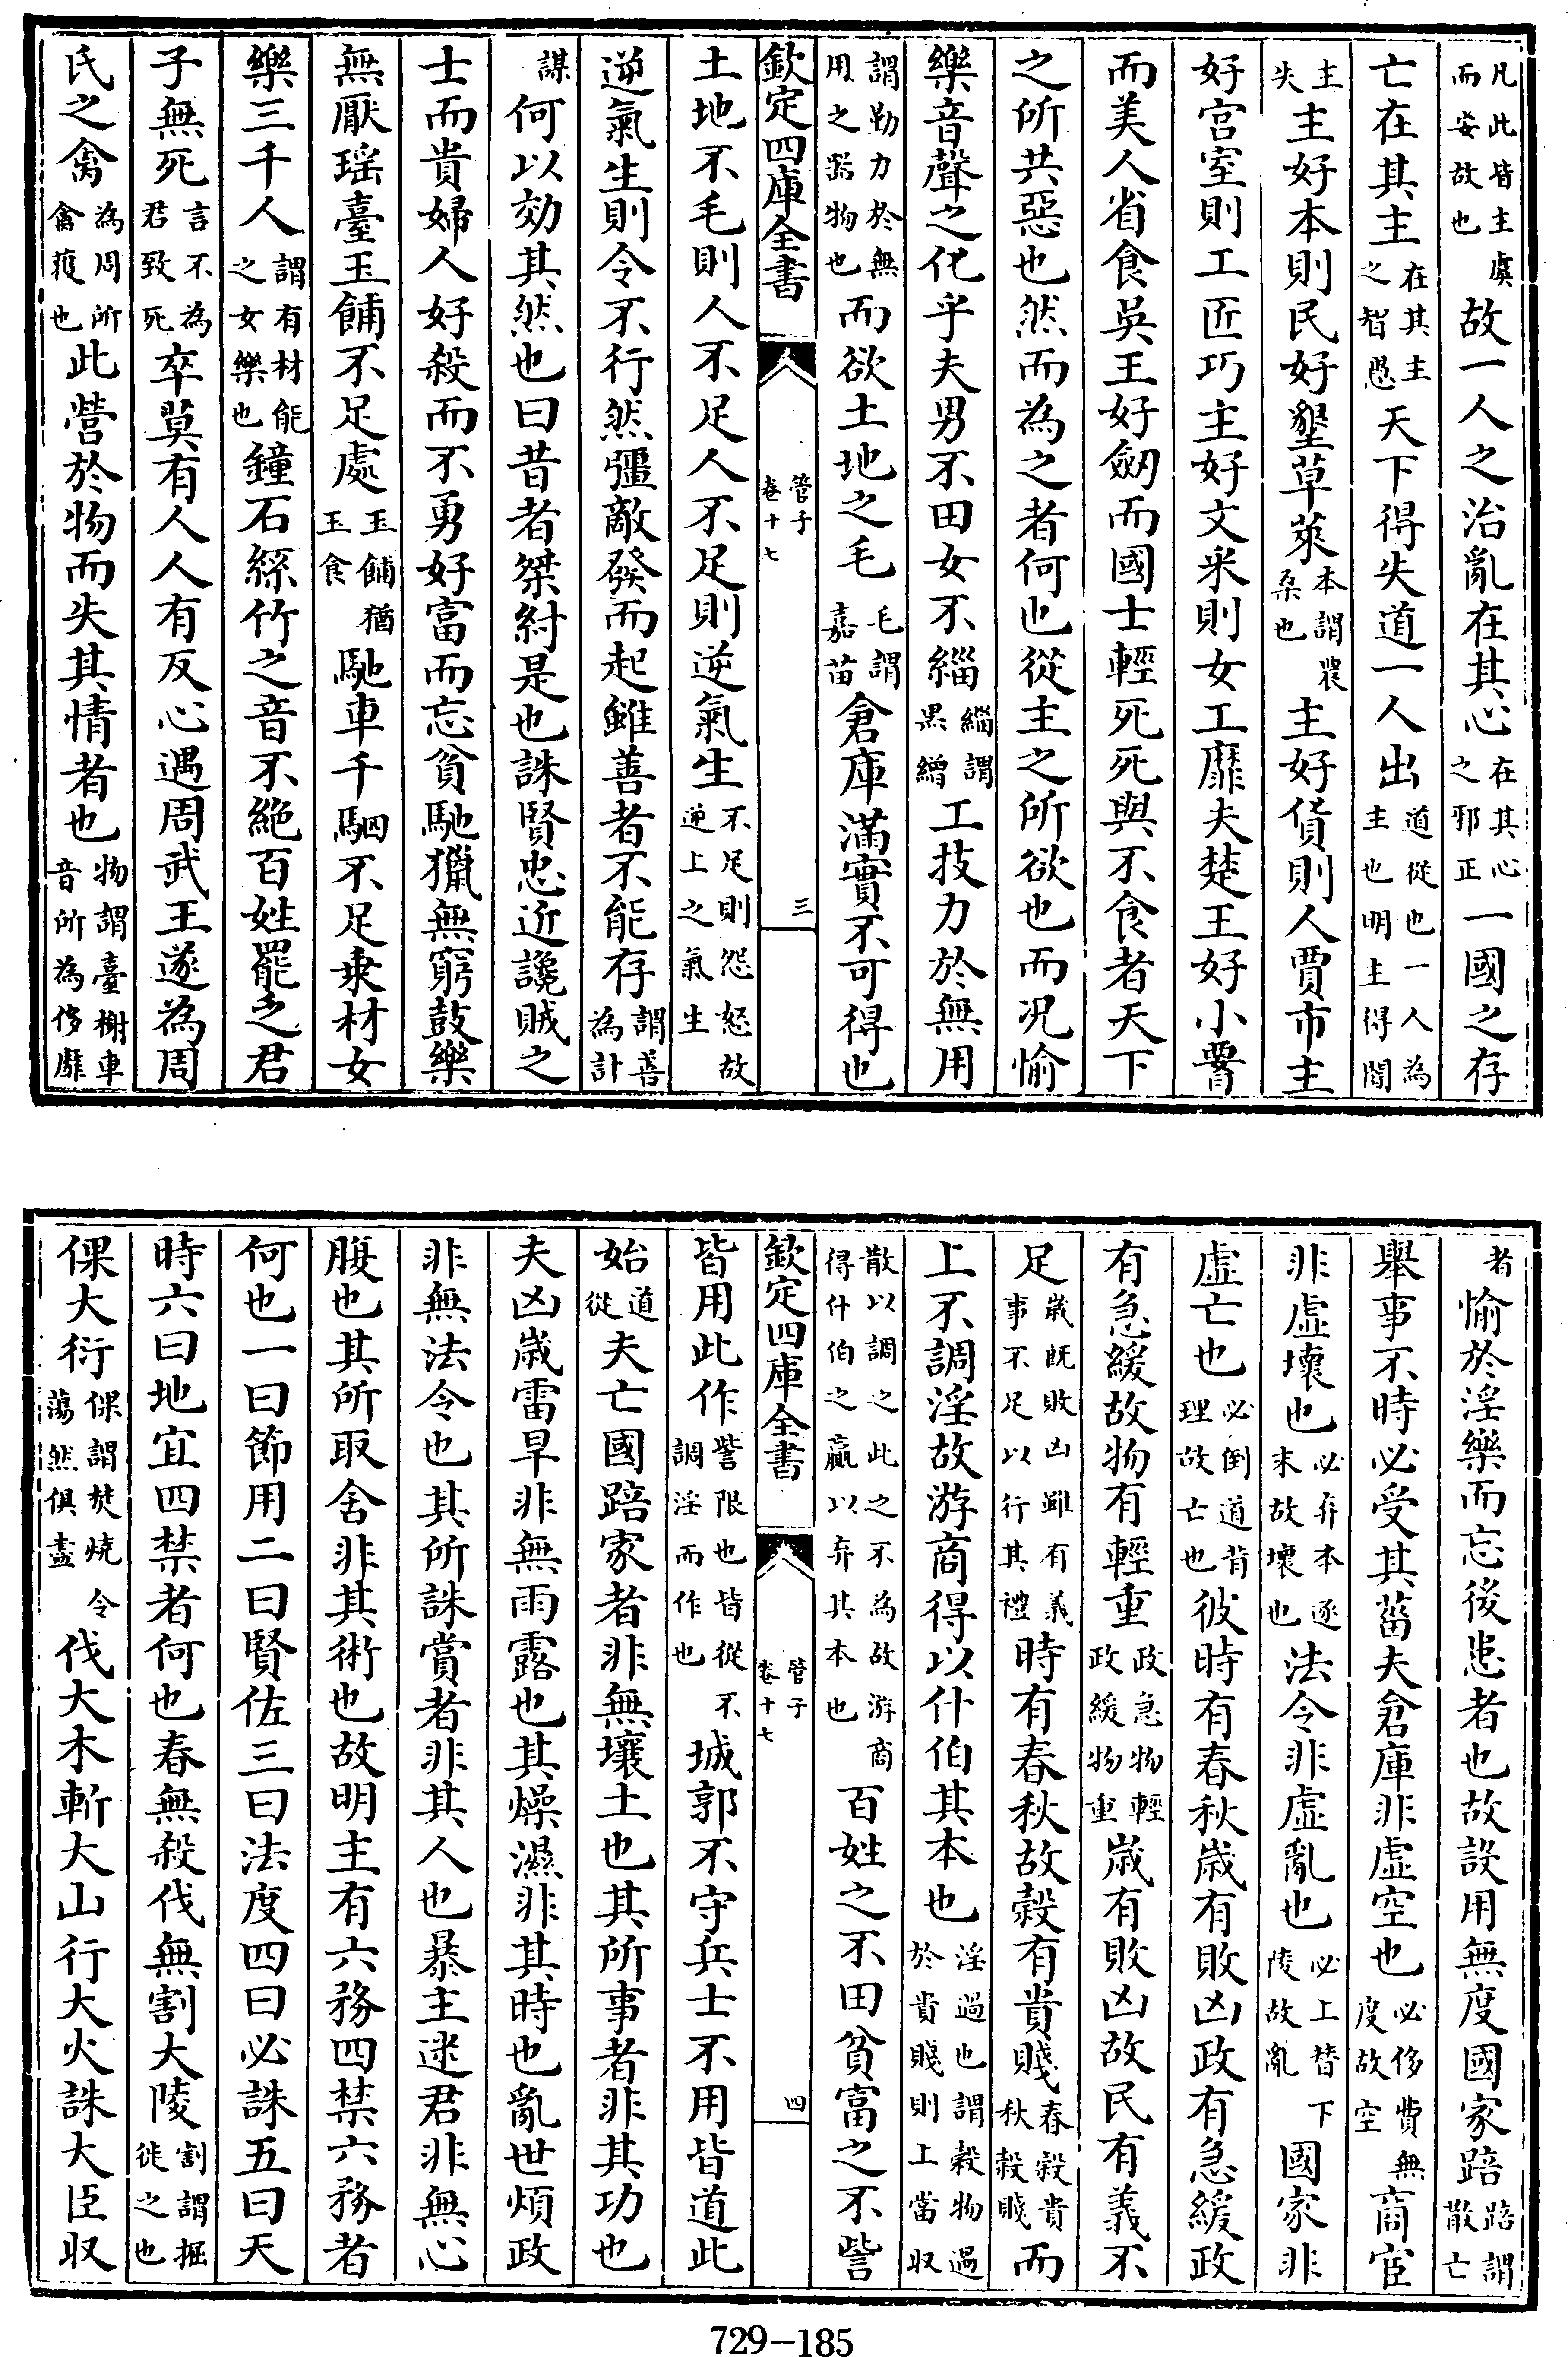 凡此皆主虞而安故也故一人之治亂在其心在其心之邪正一國之存
亡在其主在其主之智愚天下得失道一人出道從也一人為主也明主得闇
主失主好本則民好墾草萊本謂農桑也主好貨則人賈市主
好宫室則工匠巧主好文采則女工靡夫楚王好小𦝫
而美人省食吳王好劒而國士輕死死與不食者天下
之所共惡也然而為之者何也從主之所欲也而况愉
樂音聲之化乎夫男不田女不緇緇謂黒繒工技力於無用
謂勤力於無用之器物也而欲土地之毛毛謂嘉苗倉庫滿實不可得也
欽定四庫全書 管子 卷十七 三
土地不毛則人不足人不足則逆氣生不足則怨怒故逆上之氣生
逆氣生則令不行然彊敵發而起雖善者不能存謂善為計
謀何以効其然也曰昔者桀紂是也誅賢忠近讒賊之
士而貴婦人好殺而不勇好富而忘貧馳獵無窮鼓樂
無厭瑶臺玉餔不足處玉餔猶玉食馳車千駟不足乗材女
樂三千人謂有材能之女樂也鐘石絲竹之音不絶百姓罷乏君
子無死言不為君致死卒莫有人人有反心遇周武王遂為周
氏之禽為周所禽獲也此營於物而失其情者也物謂臺榭車音所為侈靡
者愉於淫樂而忘後患者也故設用無度國家踣踣謂散亡
舉事不時必受其菑夫倉庫非虚空也必侈費無度故空商宦
非虚壞也必弃本逐末故壞也法令非虚亂也必上替下陵故亂國家非
虚亡也必倒道背理故亡也彼時有春秋歲有敗凶政有急緩政
有急緩故物有輕重政急物輕政緩物重歲有敗凶故民有義不
足歲既敗凶雖有義事不足以行其禮時有春秋故榖有貴賤春榖貴秋榖賤而
上不調淫故游商得以什伯其本也淫過也謂榖物過於貴賤則上當収
散以調之此之不為故游商得什伯之贏以弃其本也百姓之不田貧富之不訾
欽定四庫全書 管子 卷十七 四
皆用此作訾限也皆從不調淫而作也城郭不守兵士不用皆道此
始道從夫亡國踣家者非無壤土也其所事者非其功也
夫凶歲雷旱非無雨露也其燥濕非其時也亂世煩政
非無法令也其所誅賞者非其人也暴主迷君非無心
腹也其所取舍非其術也故明主有六務四禁六務者
何也一曰節用二曰賢佐三曰法度四曰必誅五曰天
時六曰地宜四禁者何也春無殺伐無割大陵割謂掘徙之也
倮大衍倮謂焚燒令蕩然俱盡伐大木斬大山行大火誅大臣収
729-185